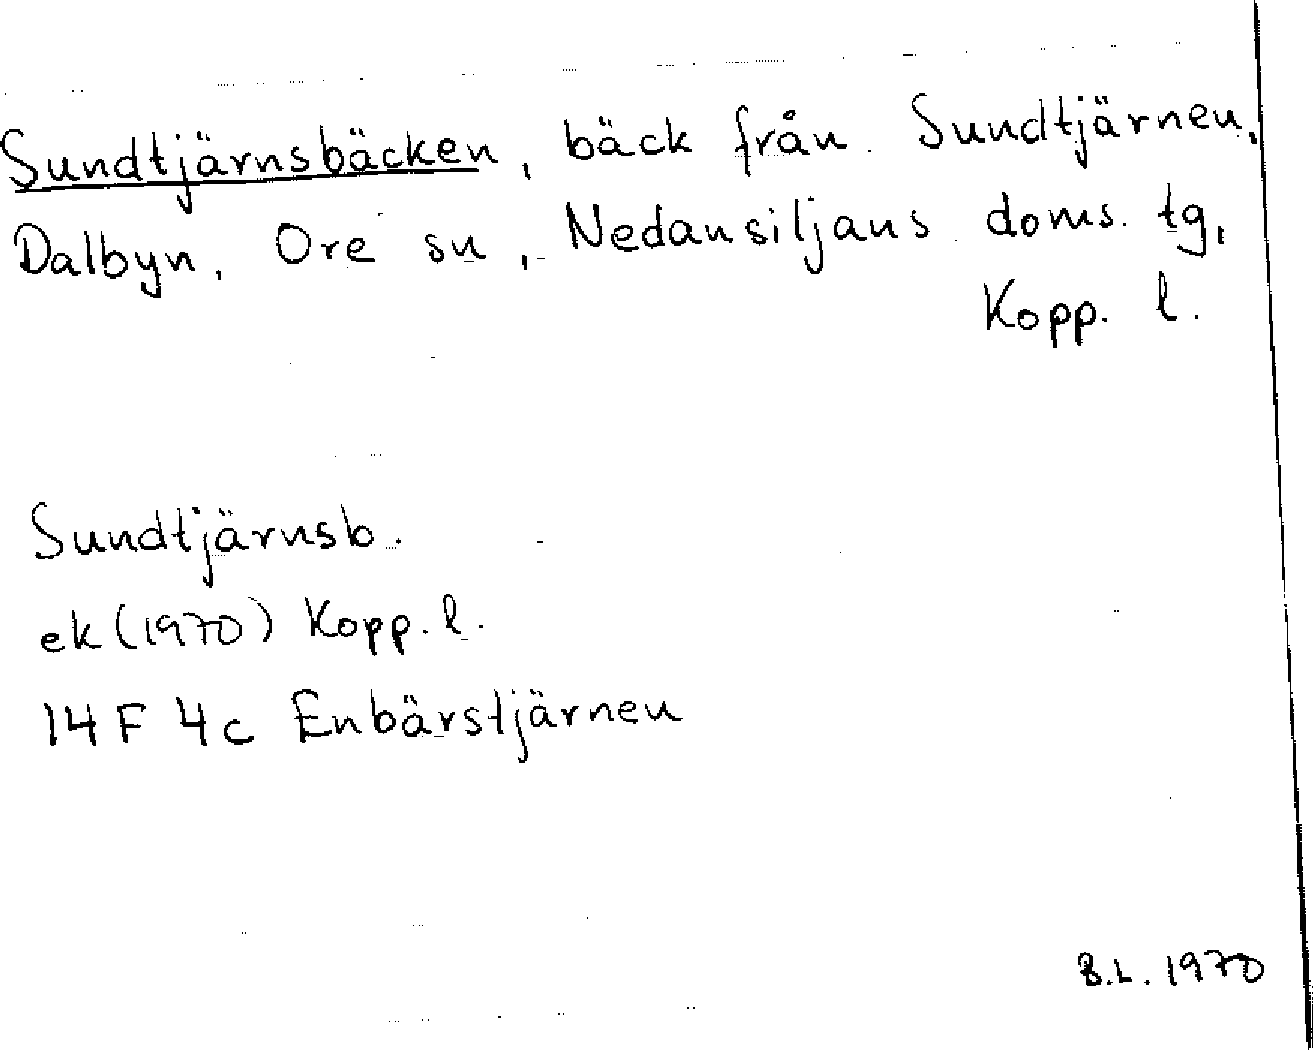 Sundtjärnsbäcken, bäck från Sundtjärnen,
Dalbyn, Ore sn, Nedansiljans doms. tg,
Kopp. l.
Sundtjärnsb.
ek (1970) Kopp. l.
14 F 4c Enbärstjärnen
B.L. 1970